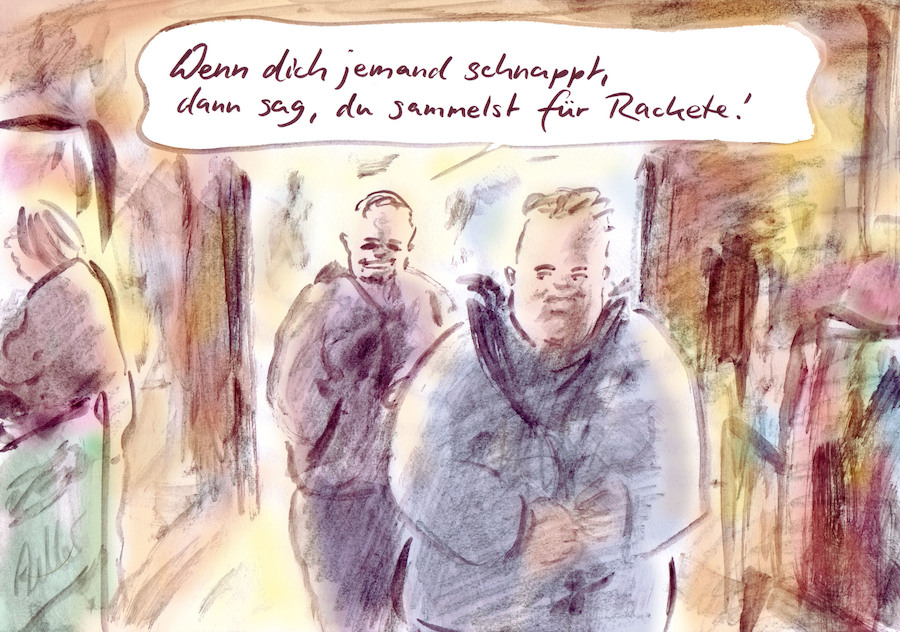 Wenn dich jemand schnappt,
dann sag, du sammelst für Rackete!